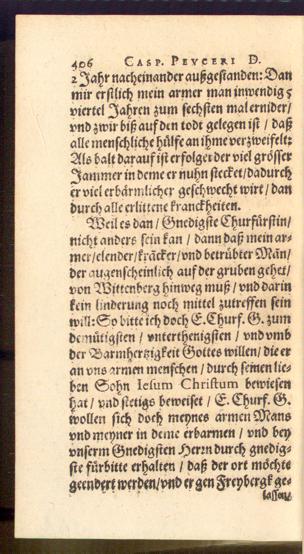 406 CASP. PEVCERI D.
2 Jahr nacheinander außgestanden: Dan
mir erstlich mein armer man inwendig 5
viertel Jahren zum sechsten mal ernider/
vnd zwir biß auf den todt gelegen ist / daß
alle menschliche hülfe an ihme verzweifelt:
Als balt darauf ist erfolget der viel grösser
Jammer in deme er nuhn stecket/dadurch
er viel erbärmlicher geschwecht wirt / dan
durch alle erlittene kranckheiten.
Weil es dan / Gnedigste Churfürstin/
nicht anders sein kan / dann daß mein ar-
mer/elender/kräcker/vnd betrübter Män/
der augenscheinlich auf der gruben gehet/
von Wittenberg hinweg muß / vnd darin
kein linderung noch mittel zutreffen sein
will: So bitte ich doch E. Churf. G. zum
demütigsten / vnterthenigsten / vnd vmb
der Barmhertzigkeit Gottes willen/die er
an vns armen menschen / durch seinen lie-
ben Sohn Iesum Christum bewiesen
hat / vnd stetigs beweiset / E. Churf. G.
wollen sich doch meynes armen Mans
vnd meyner in deme erbarmen / vnd bey
vnserm Gnedigsten Herrn durch gnedig-
ste fürbitte erhalten / daß der ort möchte
geendert werden/vnd er gen Freybergk ge-
lassen/